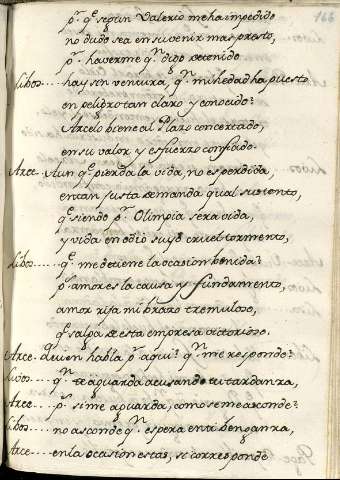 166
pr. qe segun Valerio me ha impedido
no dudo sea en su venir mas presto,
pr. haverme qn. digo detenido
Libo..... hay sin ventura, qn. mi hedad ha puesto
en peligro tan claro y conocido?
Arcelo biene al Plazo concertado,
en su valor y esfuerzo confiado.
Arce.- Aun qe. pierda la vida, no es perdida,
en tan justa demanda qual su intento,
qe. siendo pr. Olimpia sera vida,
y vida en odio suyo cruel tormento,
Libo...... qe. me detiene la ocasion benida?
pr. amor es la causa y fundamento,
amor rija mi brazo tremuloso,
qe. salga de esta empresa victorioso.
Arce- quien habla pr. aqui? qn. me responde?
Libo.... qn. te aguarda acusando tu tardanza,
Arce..... pr. si me aguarda, como se me asconde?
Libo.... no asconde qn. espera en tr. benganza,
Arce..... en la ocasion estas, si corresponde